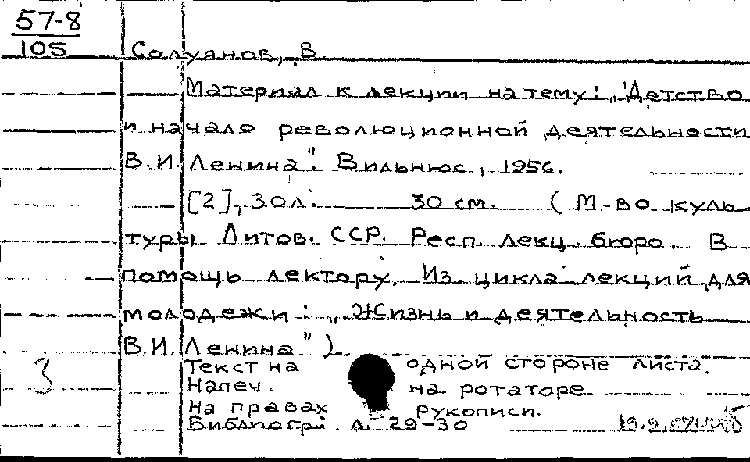 57-8
105 Солуянов, В.
Материал к лекции на тему: „Детство
и начало революционной деятельности
В.И. Ленина". Вильнюс, 1956.
[2], 30 л. 30 см. (М-во куль
туры Литов. ССР. Респ. лекц. бюро. В
помощь лектору. Из цикла лекций для
молодежи: „Жизнь и деятельность
В.И. Ленина")
3 Текст на одной стороне листа.
Напеч. на ротаторе
На правах рукописи.
Библиогр. л. 29-30